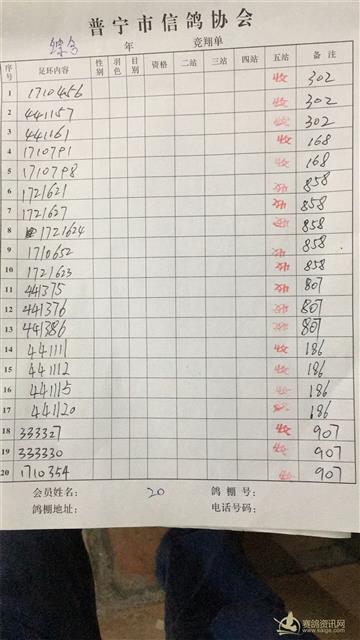 普宁市信鸽协会
综合 年 竞翔单
序号 足环内容 性别 羽色 日别 资格 二站 三站 四站 五站 备注
1 1710456 收 302
2 441157 收 302
3 441161 收 302
4 1710791 收 168
5 1710798 收 168
6 1721621 858
7 1721627 858
8 1721624 858
9 1710652 858
10 1721623 858
11 441375 807
12 441376 807
13 441386 807
14 441111 收 186
15 441112 收 186
16 441115 收 186
17 441120 收 186
18 333327 收 907
19 333330 收 907
20 1710354 收 907
会员姓名: 20 鸽棚号:
鸽棚地址: 电话号码:
赛鸽资讯网
www.saige.com